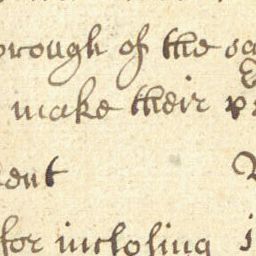 orough of the sa
make their p
ent
for inclosing